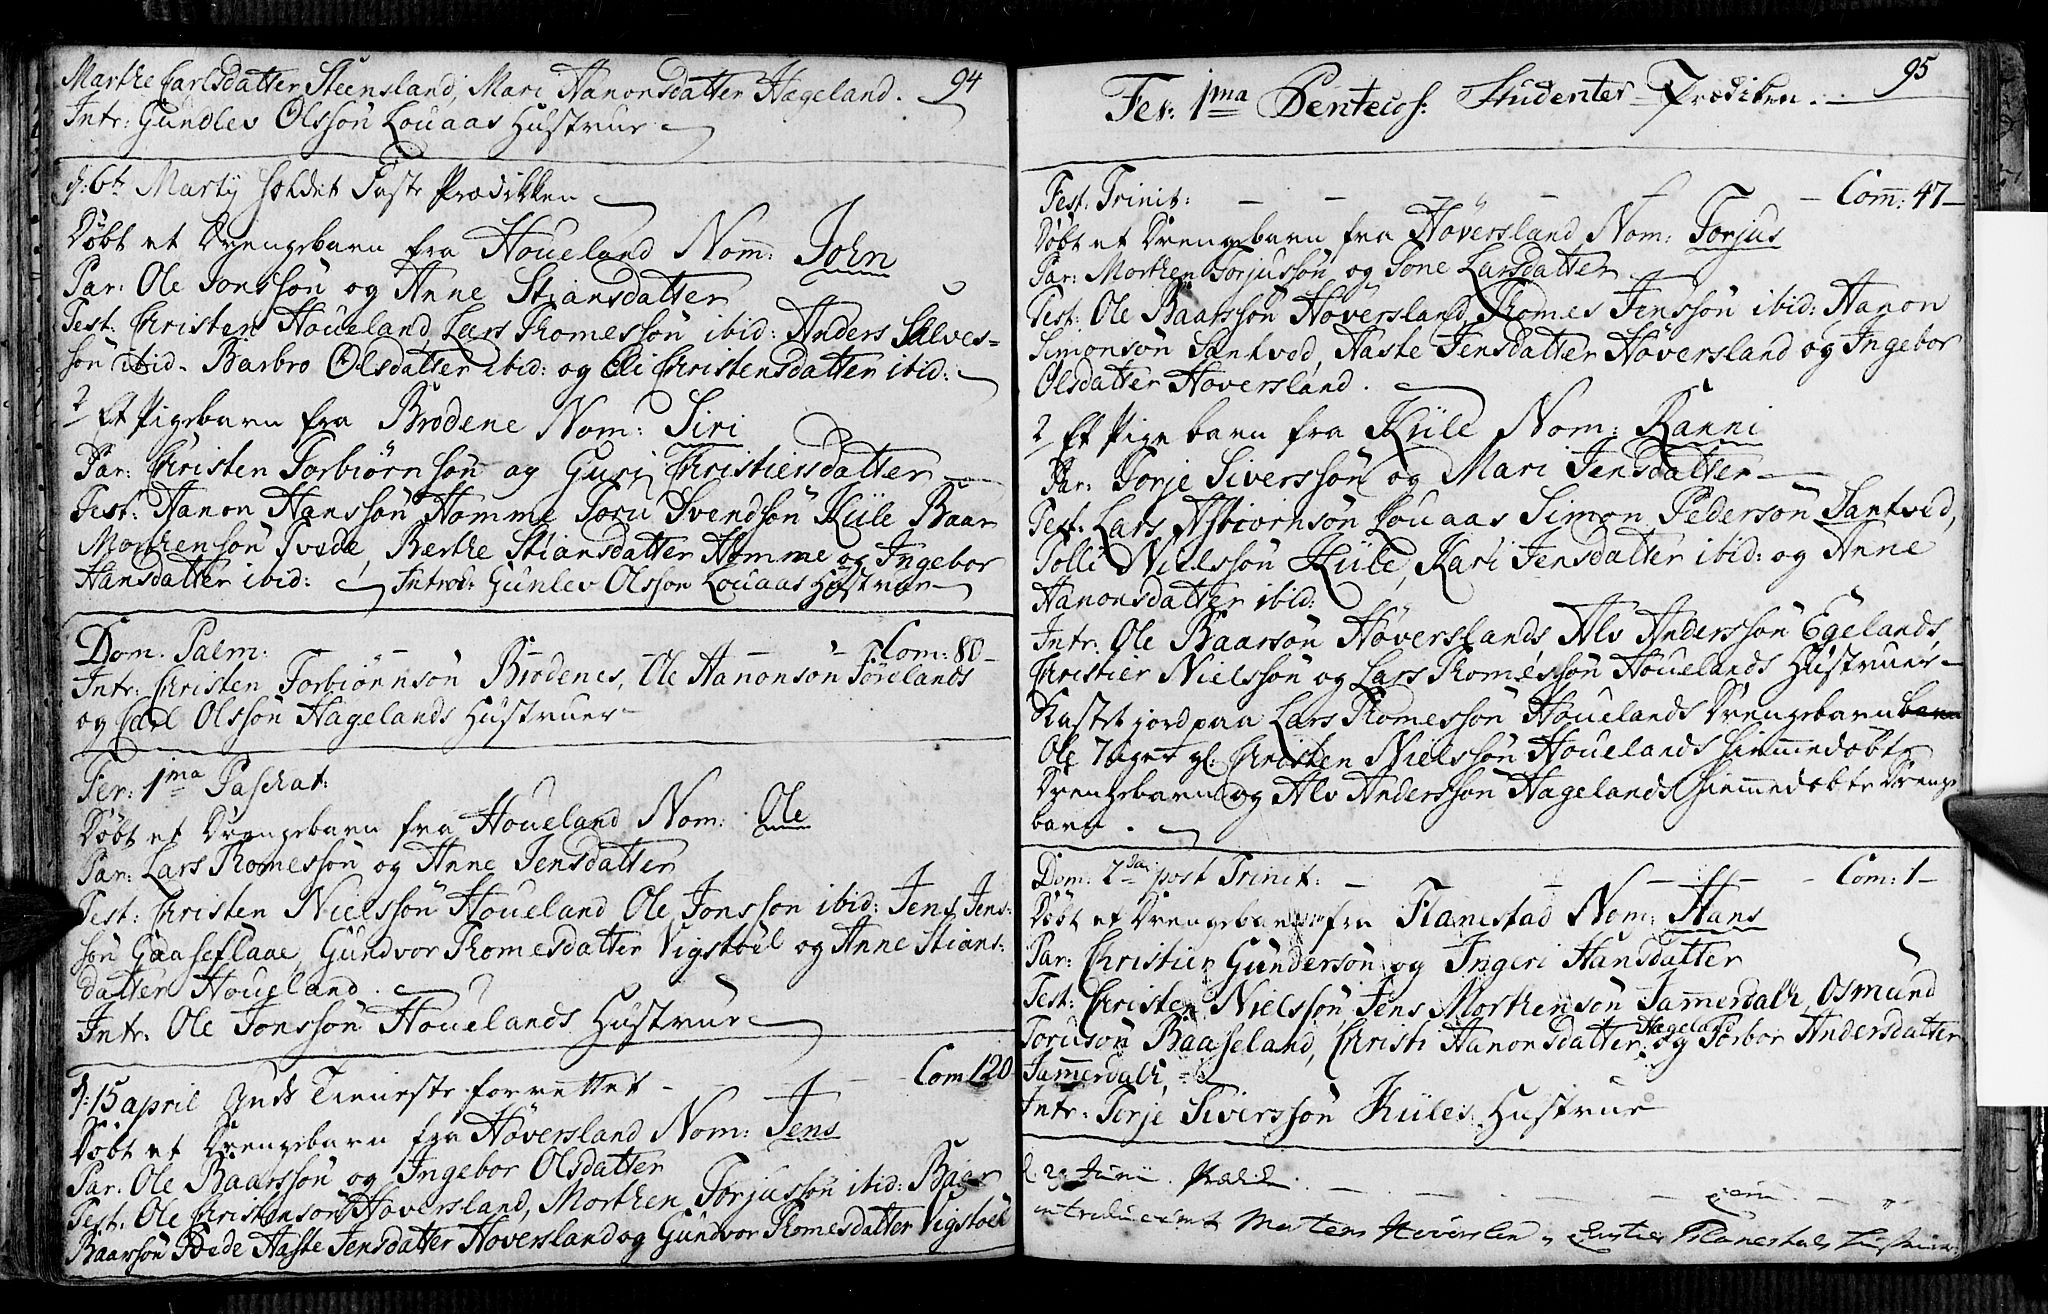 94
Marthe Carlsdatter Steensland, Mari Hanonsdatter Hægeland.
Intr: Gundlev Olssøn Louaas Hustrue
d: 6te Marty holdet Faste Prædikken
Døbt et Drengebarn fra Houeland Nom: John
Par: Ole Jonssøn og Anne Stiansdatter
Test: Christen Houeland, Lars Thomessøn ibid: Anders Salves=
søn ibid. Barbro Olsdatter ibid: og Eli Christensdatter ibid:
2 Et Pigebarn fra Brødene Nom: Siri
Par: Christen Torbiørnsøn og Guri Christiersdatter
Test: Hanon Hanssøn Homme Toru Svendsøn Kiile Baar
Morthensøn Tvede, Berthe Stiansdatter Homme og Ingebor
Hansdatter ibid: Introd: Gunlev Olssøn Louaas Hustrue
Dom. Palm: Com: 80
Intr: Christen Torbiørnsøn Brødenes, Ole Hanonsøn Førelands
og Carl Olssøn Hagelands Hustruer
Fer: 1ma Paschat:
Døbt et Drengebarn fra Houeland Nom: Ole
Par: Lars Thomessøn og Anne Jensdatter
Test: Christen Nielssøn Houeland, Ole Jonssøn ibid: Jens Jens:
søn Gaaseflaae, Gundvor Thomesdatter Vigstøel og Anne Stians:
datter Houeland.
Intr: Ole Jonssøn Houelands Hustrue
d: 15 april Guds Tieneste forrettet Com 120
Døbt et Drengebarn fra Høversland Nom: Jens
Par: Ole Baarssøn og Ingebor Olsdatter
Test: Ole Christensøn Høversland, Morthen Torjussøn ibid: Baar
Baarsøn Boede Haste Jensdatter Høversland og Gundvor Thomesdatter Vigstøel
95
Fer: 1ma Pentecos: Studenter Prædiken.
Fest: Trinit: Com: 47
Døbt et Drengebarn fra Høversland Nom: Torjus
Par: Morthen Torjussøn og Tone Larsdatter
Test: Ole Baarssøn Høversland, Thomes Jenssøn ibid: Hanon
Simonsøn Santved, Haste Jensdatter Høversland og Ingebor
Olsdatter Høversland.
2 Et Pige barn fra Kiile Nom: Ranni
Par: Torje Siverssøn og Mari Jensdatter
Test: Lars Asbiornsøn Louaas Simon Pedersøn Santved,
Tolli Nielssøn Kiile, Kari Jensdatter ibid: og Anne
Hanonsdatter ibid:
Intr: Ole Baarssøn Høverslands, Alv Anderssøn Egelands,
Christier Nielssøn og Lars Thomessøn Houelands Hustruer
Kastet jord paa Lars Thomessøn Houelands Drengebarn
Ole 7 uger gl: Christen Nielssøn Houelands hiemmedøbte
Drengebarn og Alv Anderssøn Hagelands hiemmedøbte Drenge
barn.
Dom: 2da post Trinit: Com: 1
Døbt et Drengebarn fra Flanestad Nom: Hans
Par: Christier Gundersøn og Ingeri Hansdatter
Test: Christen Nielssøn, Jens Morthensøn Jammerdalh, Osmund
Torusøn Baaseland, Christi Hanonsdatter Hageland og Torbor Andersdatter
Jammerdalh,
Intr: Terje Siverssøn Kiiles Hustrue
d. 29 Junii. Prædik.
introduceret Mortens Høverslen